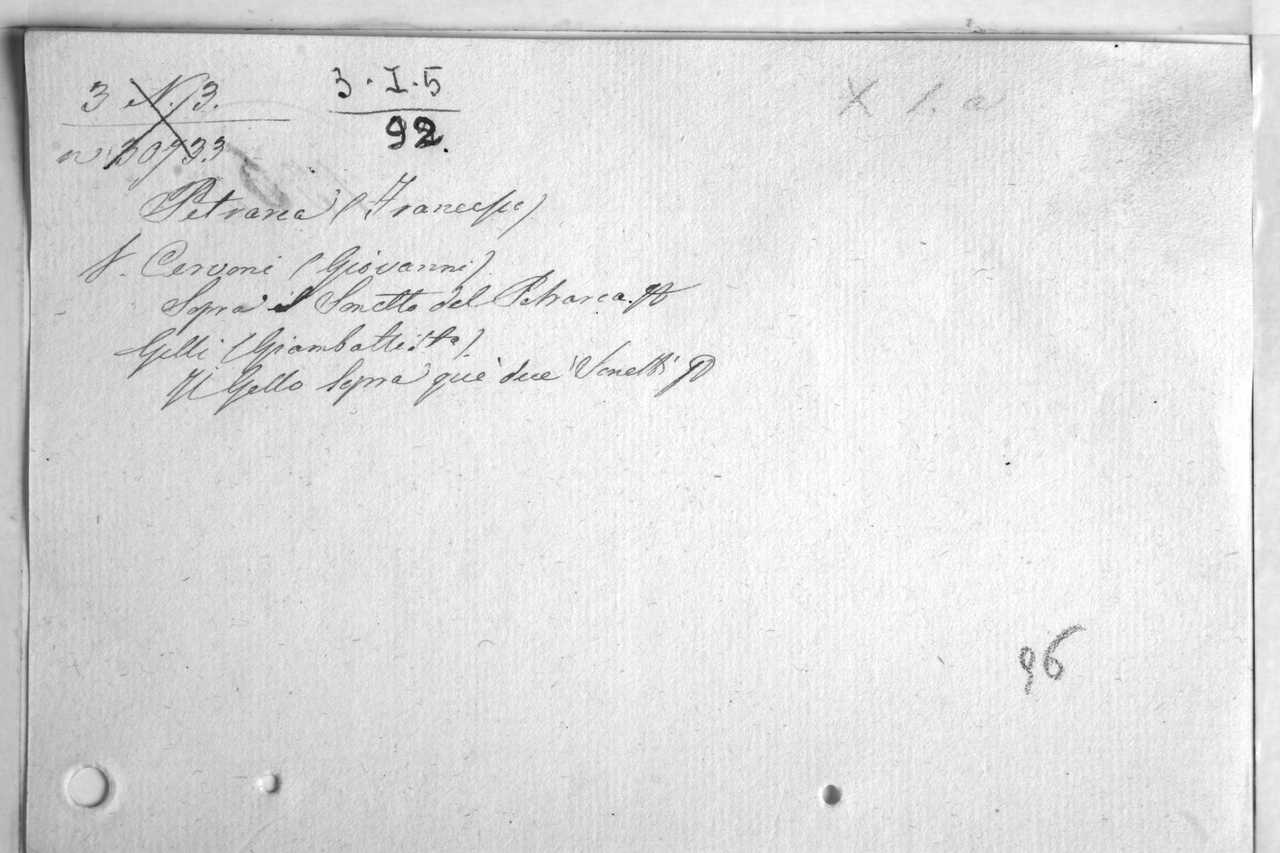 3 N. 3.
n 30733
3 · I · 5
92.
X 1. a
Petrarca (Francesco)
V. Cervoni (Giovanni)
Sopra il Sonetto del Petrarca.
Gelli (Giambattista).
Il Gello sopra que' due Sonetti
96